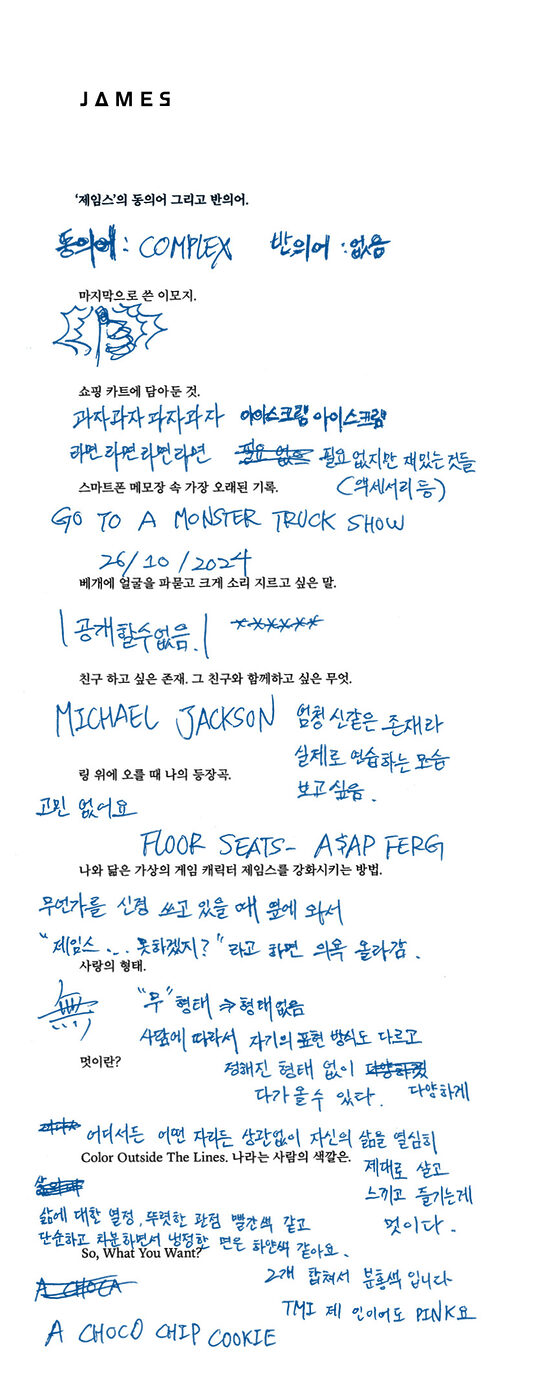 JAMES
'제임스'의 동의어 그리고 반의어.
동의어 : COMPLEX 반의어 : 없음
마지막으로 쓴 이모지.
쇼핑 카트에 담아둔 것.
과자과자과자과자 아이스크림 아이스크림
라면라면라면라면 필요 없지만 재밌는 것들
(액세서리 등)
스마트폰 메모장 속 가장 오래된 기록.
GO TO A MONSTER TRUCK SHOW
26/10/2024
베개에 얼굴을 파묻고 크게 소리 지르고 싶은 말.
공개할수없음. ******
친구 하고 싶은 존재. 그 친구와 함께하고 싶은 무엇.
MICHAEL JACKSON 엄청 신같은 존재라
실제로 연습하는 모습
보고싶음.
링 위에 오를 때 나의 등장곡.
고민 없어요
FLOOR SEATS- A$AP FERG
나와 닮은 가상의 게임 캐릭터 제임스를 강화시키는 방법.
무언가를 신경 쓰고 있을 때 옆에 와서
"제임스... 못하겠지?"라고 하면 의욕 올라감.
사랑의 형태.
無 "무" 형태 → 형태없음
사람에 따라서 자기의 표현 방식도 다르고
정해진 형태 없이
다가올수 있다. 다양하게
멋이란?
어디서든 어떤 자리든 상관없이 자신의 삶을 열심히
제대로 살고
느끼고 즐기는게
멋이다.
Color Outside The Lines. 나라는 사람의 색깔은.
삶에 대한 열정, 뚜렷한 관점 빨간색 같고
단순하고 차분하면서 냉정한 면은 하얀색 같아요.
2개 합쳐서 분홍색 입니다
TMI 제 인이어도 PINK요
So, What You Want?
A CHOCA
A CHOCO CHIP COOKIE